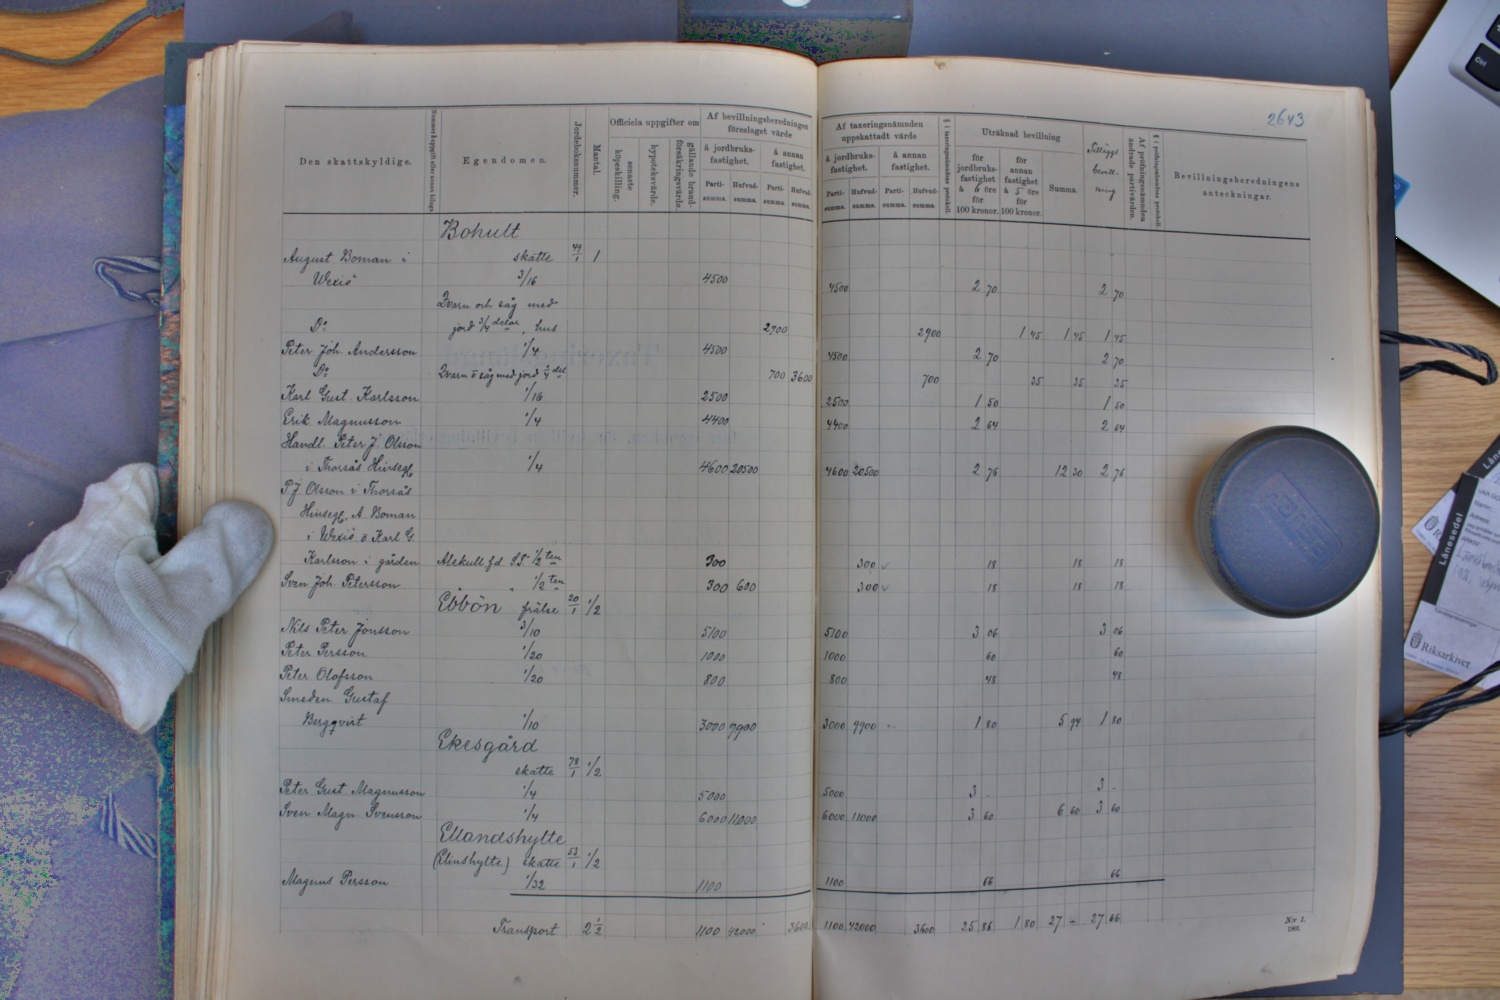 2643
Den skattskyldige.
Egendomen.
Jordeboksnummer.
Mantal.
Officiela uppgifter om
senaste köpeskilling.
hypoteksvärde.
gällande brandförsäkringsvärde.
Af bevillningsberedningen föreslaget värde
å jordbruksfastighet.
å annan fastighet.
Partisumma.
Hufvudsumma.
Partisumma.
Hufvudsumma.
Af taxeringsnämnden uppskattadt värde
å jordbruksfastighet.
å annan fastighet.
Partisumma.
Hufvudsumma.
Partisumma.
Hufvudsumma.
§ i taxeringsnämndens protokoll.
Uträknad bevillning
för jordbruksfastighet à 6 öre för 100 kronor.
för annan fastighet à 5 öre för 100 kronor.
Summa.
Tilläggs bevillning
Af pröfningsnämnden ändrade partivärden.
§ i pröfningsnämndens protokoll.
Bevillningsberedningens anteckningar.
Bohult
August Boman i skatte 44/1 1
Wexiö 3/16 4500 4500 2 70 2 70
Qvarn och såg med
Do jord 3/4 delar, hus 2900 2900 1 45 1 45 1 45
Peter Joh. Andersson 1/4 4500 4500 2 70 2 70
Do Qvarn o såg med jord 1/4 del 700 3600 700 35 35 35
Karl Gust. Karlsson 1/16 2500 2500 1 50 1 50
Erik Magnusson 1/4 4400 4400 2 64 2 64
Handl. Peter J. Olsson
i Thorsås 1/4 4600 20500 4600 20500 2 76 12 30 2 76
P J Olsson i Thorsås
A. Boman
i Wexiö o Karl G.
Karlsson i gården Alskull f.d. 1/2 ten 300 300 18 18 18
Sven Joh. Petersson " 1/2 ten 300 600 300 18 18 18
Ebbön frälse 20/1 1/2
Nils Peter Jonsson 3/10 5100 5100 3 06 3 06
Peter Persson 1/20 1000 1000 60 60
Peter Olofsson 1/20 800 800 48 48
Smeden Gustaf
Bergqvist 1/10 3000 9900 3000 9900 1 80 5 94 1 80
Ekesgård
skatte 78/1 1/2
Peter Gust. Magnusson 1/4 5000 5000 3 - 3 -
Sven Magn. Svensson 1/4 6000 11000 6000 11000 3 60 6 60 3 60
Ellandshylte
(Elinshylte) skatte 53/1 1/2
Magnus Persson 1/32 1100 1100 66 66
Transport 2 1/2 1100 42000 3600 1100 42000 3600 25 86 1 80 27 - 27 66
N:r 1.
1901.
Ctrl
Lånesedel
Namn:
Adress:
Riksarkivet